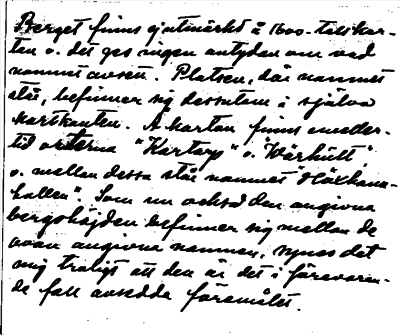 Berget finns ej utmärkt å 1600-talskar-
ten o. det ges ingen antydan om vad
namnet avsett. Platsen, där namnet
står, befinner sig dessutom i själva
kartkanten. Å kartan finns emeller-
tid orterna "Kartarp" o. Wärhult"
o. mellan dessa står namnet "Höxhana-
hallen". Som nu också den angivna
bergshöjden befinner sig mellan de
ovan angivna namnen, synes det
mig troligt att den är det i förevaran-
de fall avsedda föremålet.